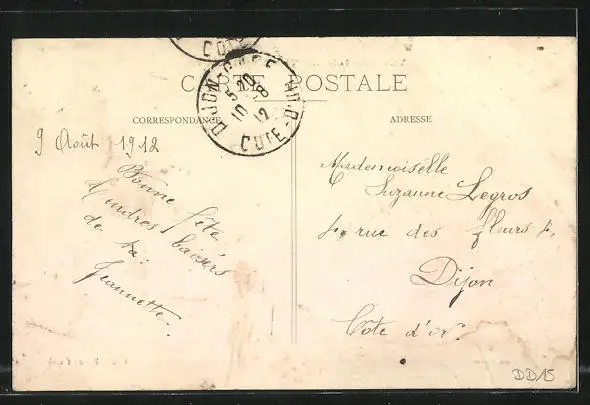 COTE
CARTE POSTALE
DIJON-GARE
5*20
10 - 8
12
COTE-D'OR
CORRESPONDANCE
ADRESSE
9 Août 1912
Bonne fête
tendres baisers
de ta
Jeannette.
Mademoiselle
Suzanne Legros
4, rue des fleurs 4,
Dijon
Côte d'or.
DD/15